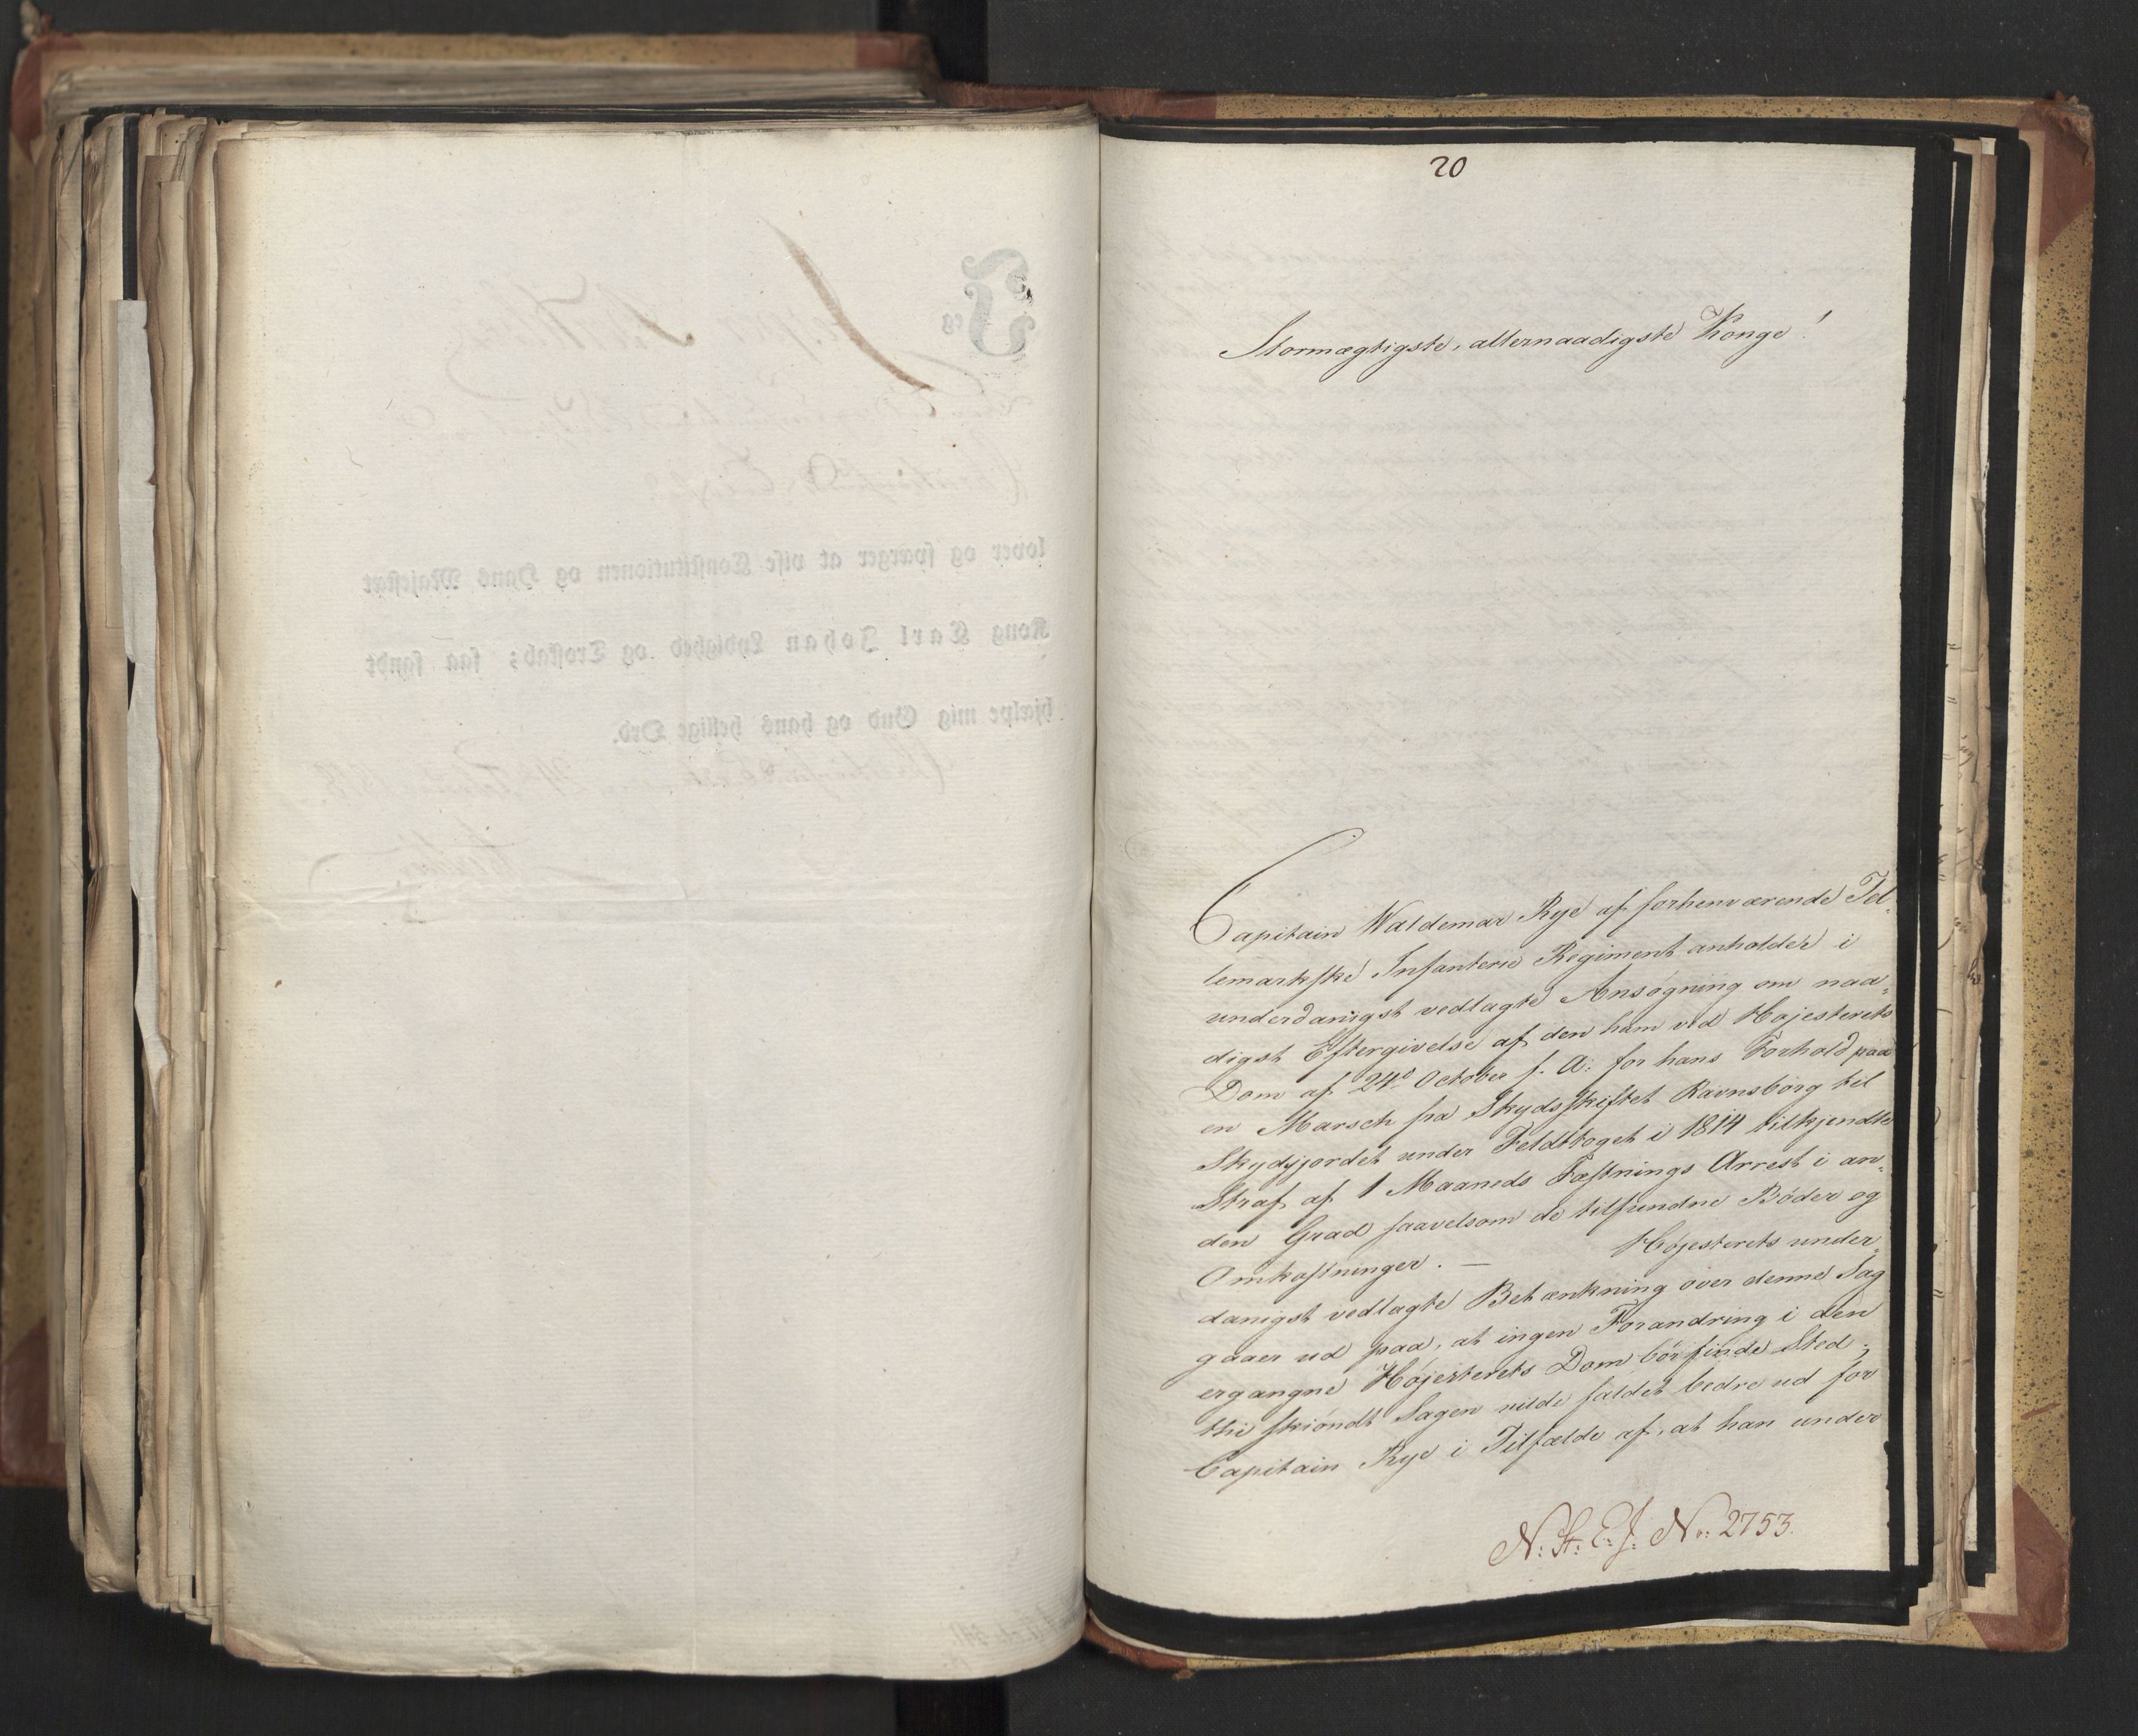 20
Stormægtigste, allernaadigste Konge!
Capitain Waldemar Rye af forhenværende Tel-
lemarkske Infanterie Regiment anholder i
underdanigst vedlagte Ansøgning om naa-
digst Eftergivelse af den ham ved Høiesterets
Dom af 24d October f. A: for hans Forhold paa
en Marsch fra Skydsskiftet Ravnsborg til
Skydsjordet under Feldttoget i 1814 tilkjendte
Straf af 1 Maaneds Fæstnings Arrest i an-
den Grad saavelsom de tilfundne Bøder og
Omkostninger. — Højesterets under-
danigst vedlagte Betænkning over denne Sag
gaaer ud paa, at ingen Forandring i den
ergangne Højesterets Dom bör finde Sted;
thi skiöndt Sagen vilde faldet bedre ud for
Capitain Rye i Tilfælde af, at han under
N: St: E. J. No: 2753.
lover og sværger at vise Constitutionen og Hans Majestæt
Kong Carl Johan Lydighed og Troskab; saa sandt
hjælpe mig Gud og hans hellige Ord.